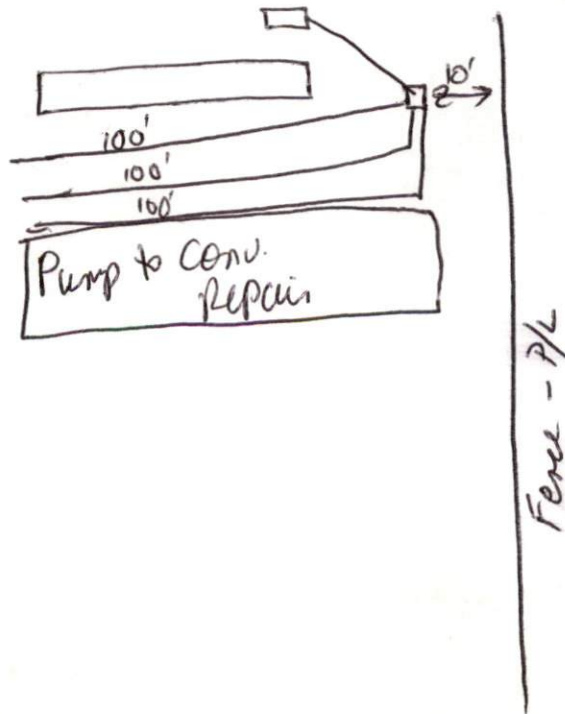 10'
100'
100'
100'
Pump to Conv.
Repair
Fence - P/L